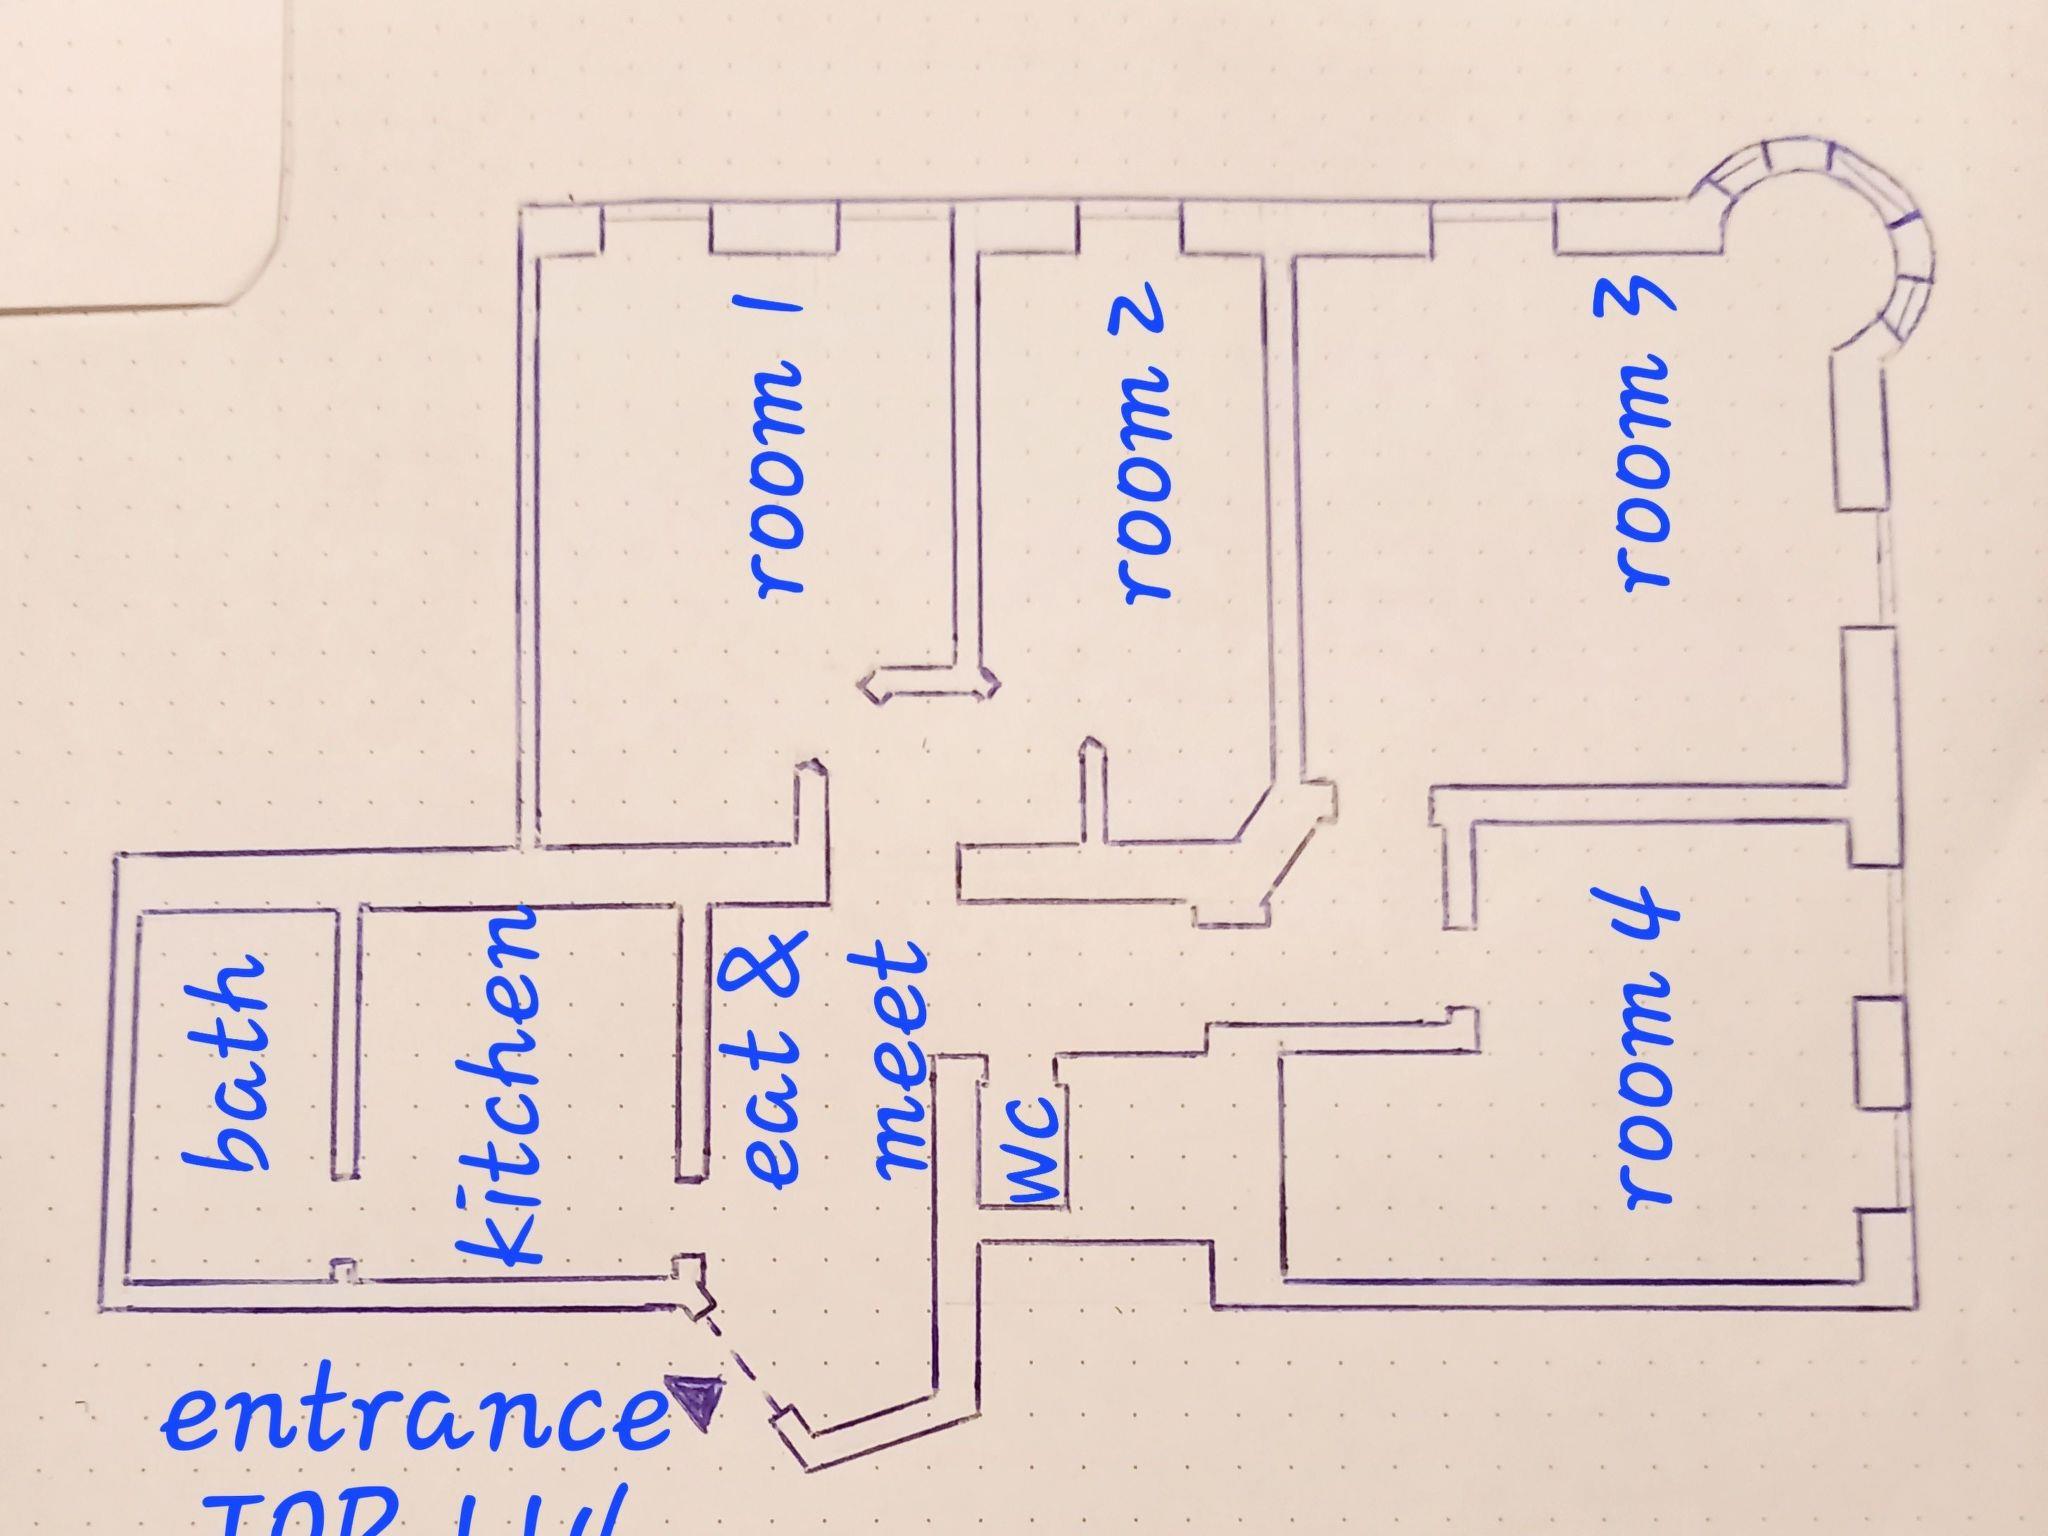 room 1
room 2
room 3
bath
kitchen
eat &
meet
wc
room 4
entrance